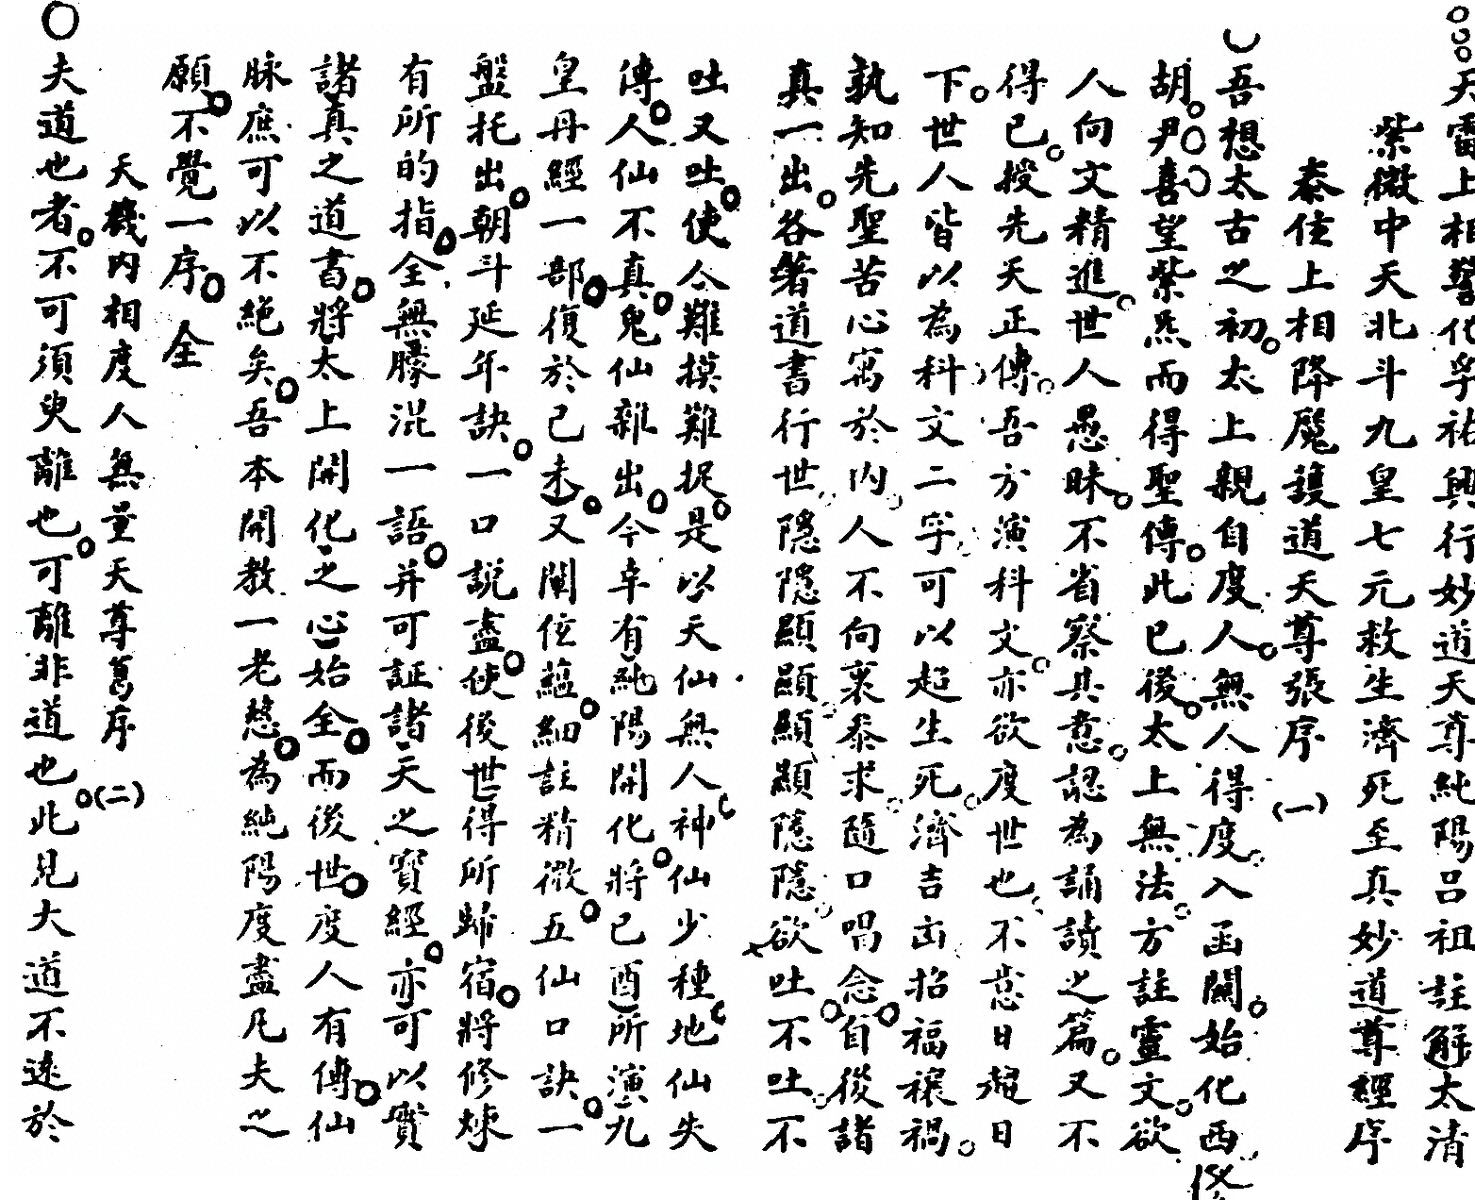 天雷上相警化孚祐興行妙道天尊純陽呂祖註解太清
紫微中天北斗九皇七元救生濟死至真妙道尊經序
泰住上相降魔護道天尊張序(一)
吾想太古之初太上親自度人無人得度入函關始化西
胡尹喜望紫炁而得聖傳此已後太上無法方註靈文欲
人向文精進世人愚昧不省察其意認為誦讀之篇又不
得已授先天正傳吾方演科文亦欲度世也不意日趨日
下世人皆以為科文二字可以超生死濟吉凶招福禳禍
孰知先聖苦心寓於內人不向裏叅求隨口唱念自後諸
真一出各著道書行世隱隱顯顯顯顯隱隱欲吐不吐不
吐又吐使人難摸難捉是以天仙無人神仙少種地仙失
傳人仙不真鬼仙雜出今幸有純陽開化將已酉所演九
皇丹經一部復於己未又闡位蘊細註精微五仙口訣一
盤托出朝斗延年訣一口說盡使後世得所歸宿將修煉
有所的指全無朦混一語并可証諸天之寶經亦可以實
諸真之道書將太上開化之心始全而後世度人有傳仙
脉庶可以不絕矣吾本開教一老愁為純陽度盡凡夫之
願不覺一序全
天機內相度人無量天尊葛序(二)
夫道也者不可須臾離也可離非道也此見大道不遠於